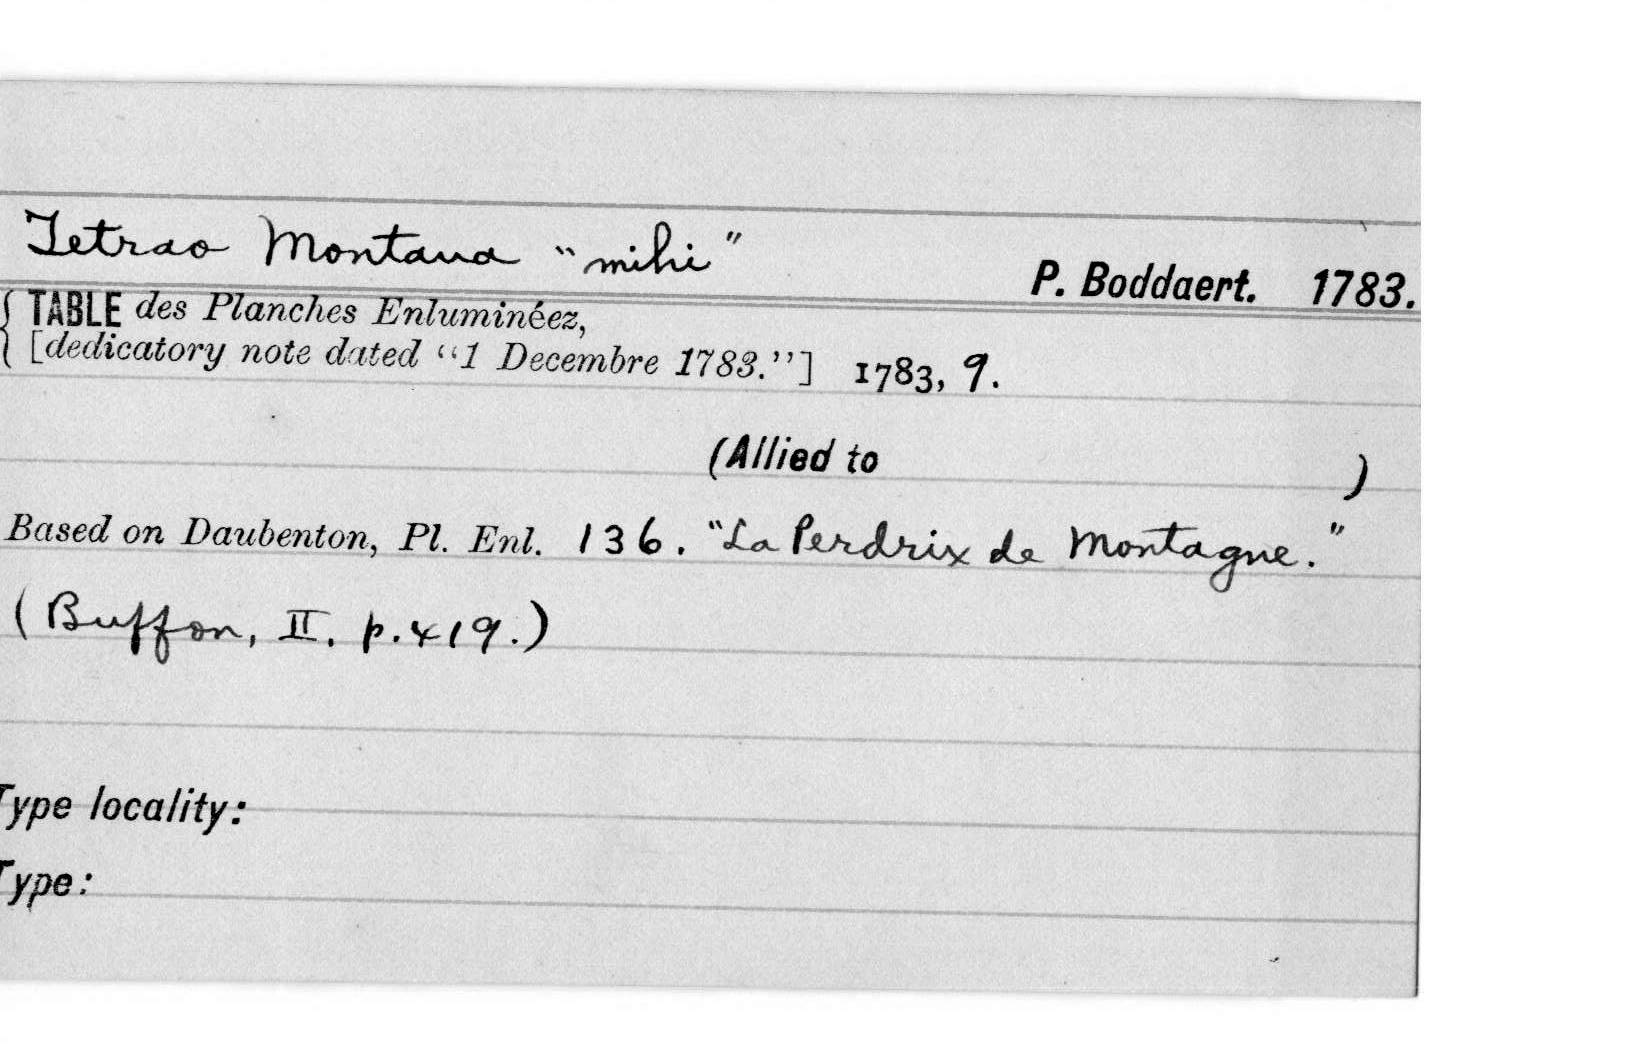 Tetrao Montana "mihi"
P. Boddaert. 1783.
TABLE des Planches Enluminéez,
[dedicatory note dated "1 Decembre 1783."] 1783, 9.
(Allied to )
Based on Daubenton, Pl. Enl. 136. "La Perdrix de Montagne."
(Buffon, II. p. 419.)
Type locality:
Type: